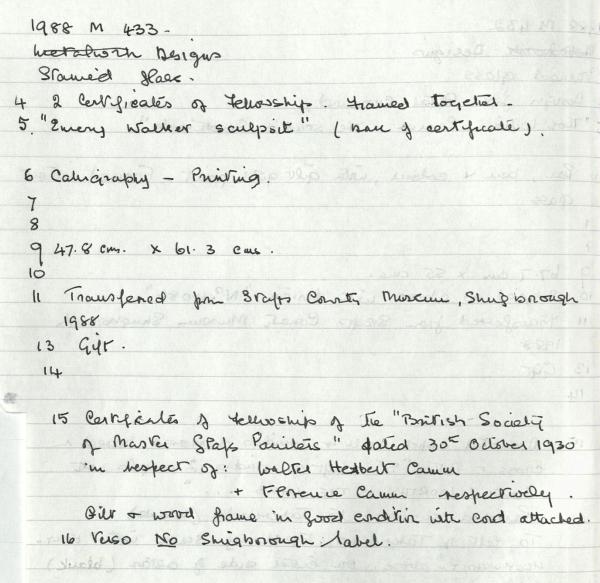 1988 M 433 -
Metalwork Designs
Stained Glass.
4 2 Certificates of Fellowship. Framed together.
5. "Emery Walker sculpsit" (base of certificate).
6 Calligraphy - Printing.
7
8
9 47.8 cms. x 61.3 cms.
10
11 Transferred from Staffs County Museum, Shugborough
1988
13 Gift.
14
15 Certificates of Fellowship of the "British Society
of Master Glass Painters" dated 30th October 1930
in respect of: Walter Herbert Camm
+ Florence Camm respectively.
Gilt & wood frame in good condition with cord attached.
16 Verso No Shugborough label.